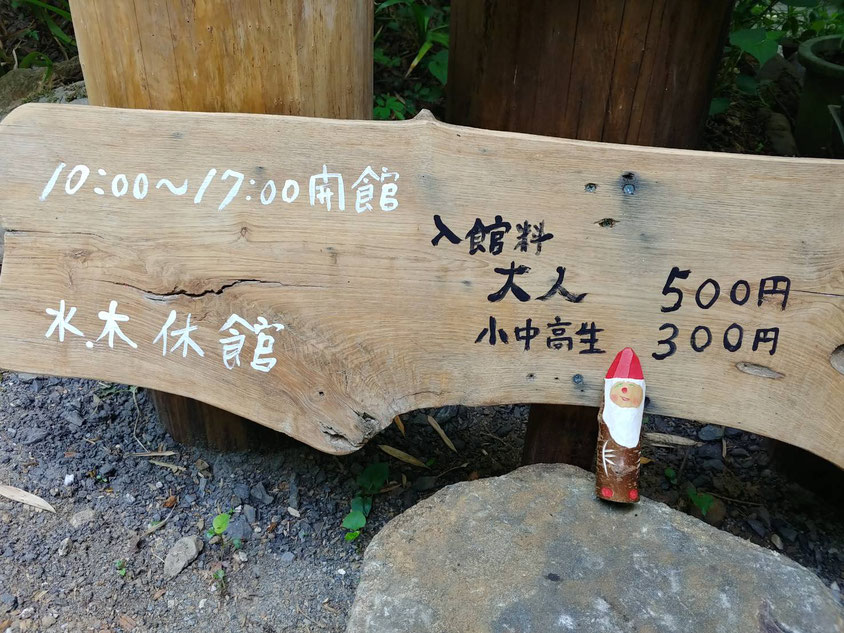 10:00～17:00開館
水.木 休館
入館料
大人 500円
小中高生 300円